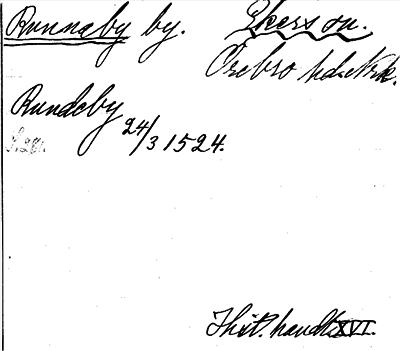 Runnaby by. Ekers sn.
Örebro hdskrk.
Rundeby 24/3 1524.
S. 281.
Hist. handl. XVI.